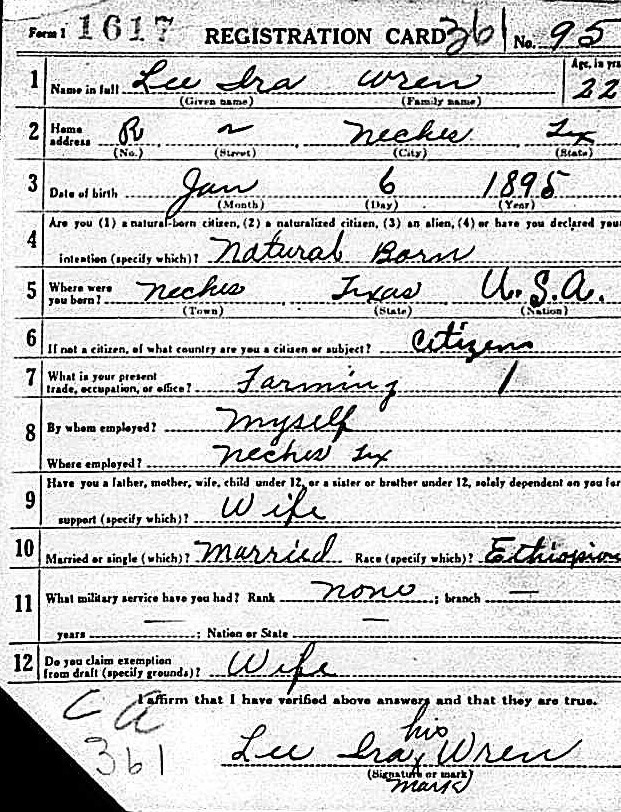 Form 1 1617 REGISTRATION CARD 361 No. 95
1 Name in full Lee Ira Wren Age, in yrs 22
(Given name) (Family name)
2 Home address R ~ Neches Tex
(No.) (Street) (City) (State)
3 Date of birth Jan 6 1895
(Month) (Day) (Year)
4 Are you (1) a natural-born citizen, (2) a naturalized citizen, (3) an alien, (4) or have you declared your
intention (specify which)? Natural Born
5 Where were you born? Neches Texas U.S.A.
(Town) (State) (Nation)
6 If not a citizen, of what country are you a citizen or subject? Citizen
7 What is your present trade, occupation, or office? Farming 1
8 By whom employed? Myself
Where employed? Neches Tex
9 Have you a father, mother, wife, child under 12, or a sister or brother under 12, solely dependent on you for
support (specify which)? Wife
10 Married or single (which)? Married Race (specify which)? Ethiopion
11 What military service have you had? Rank none ; branch —
years — ; Nation or State —
12 Do you claim exemption from draft (specify grounds)? Wife
I affirm that I have verified above answers and that they are true.
CA
361
his
Lee Ira x Wren
(Signature or mark)
mark